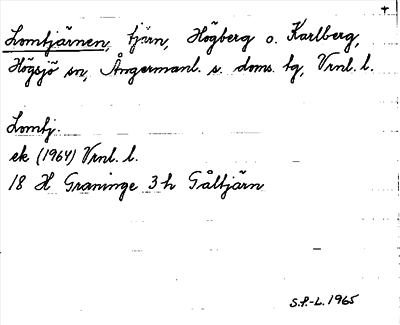 +
Lomtjärnen, tjärn, Högberg o. Karlberg,
Högsjö sn, Ångermanl. s. doms. tg, Vrnl. l.
Lomtj.
ek (1964) Vrnl. l.
18 H Graninge 3 h Gåltjärn
S.P.-L. 1965